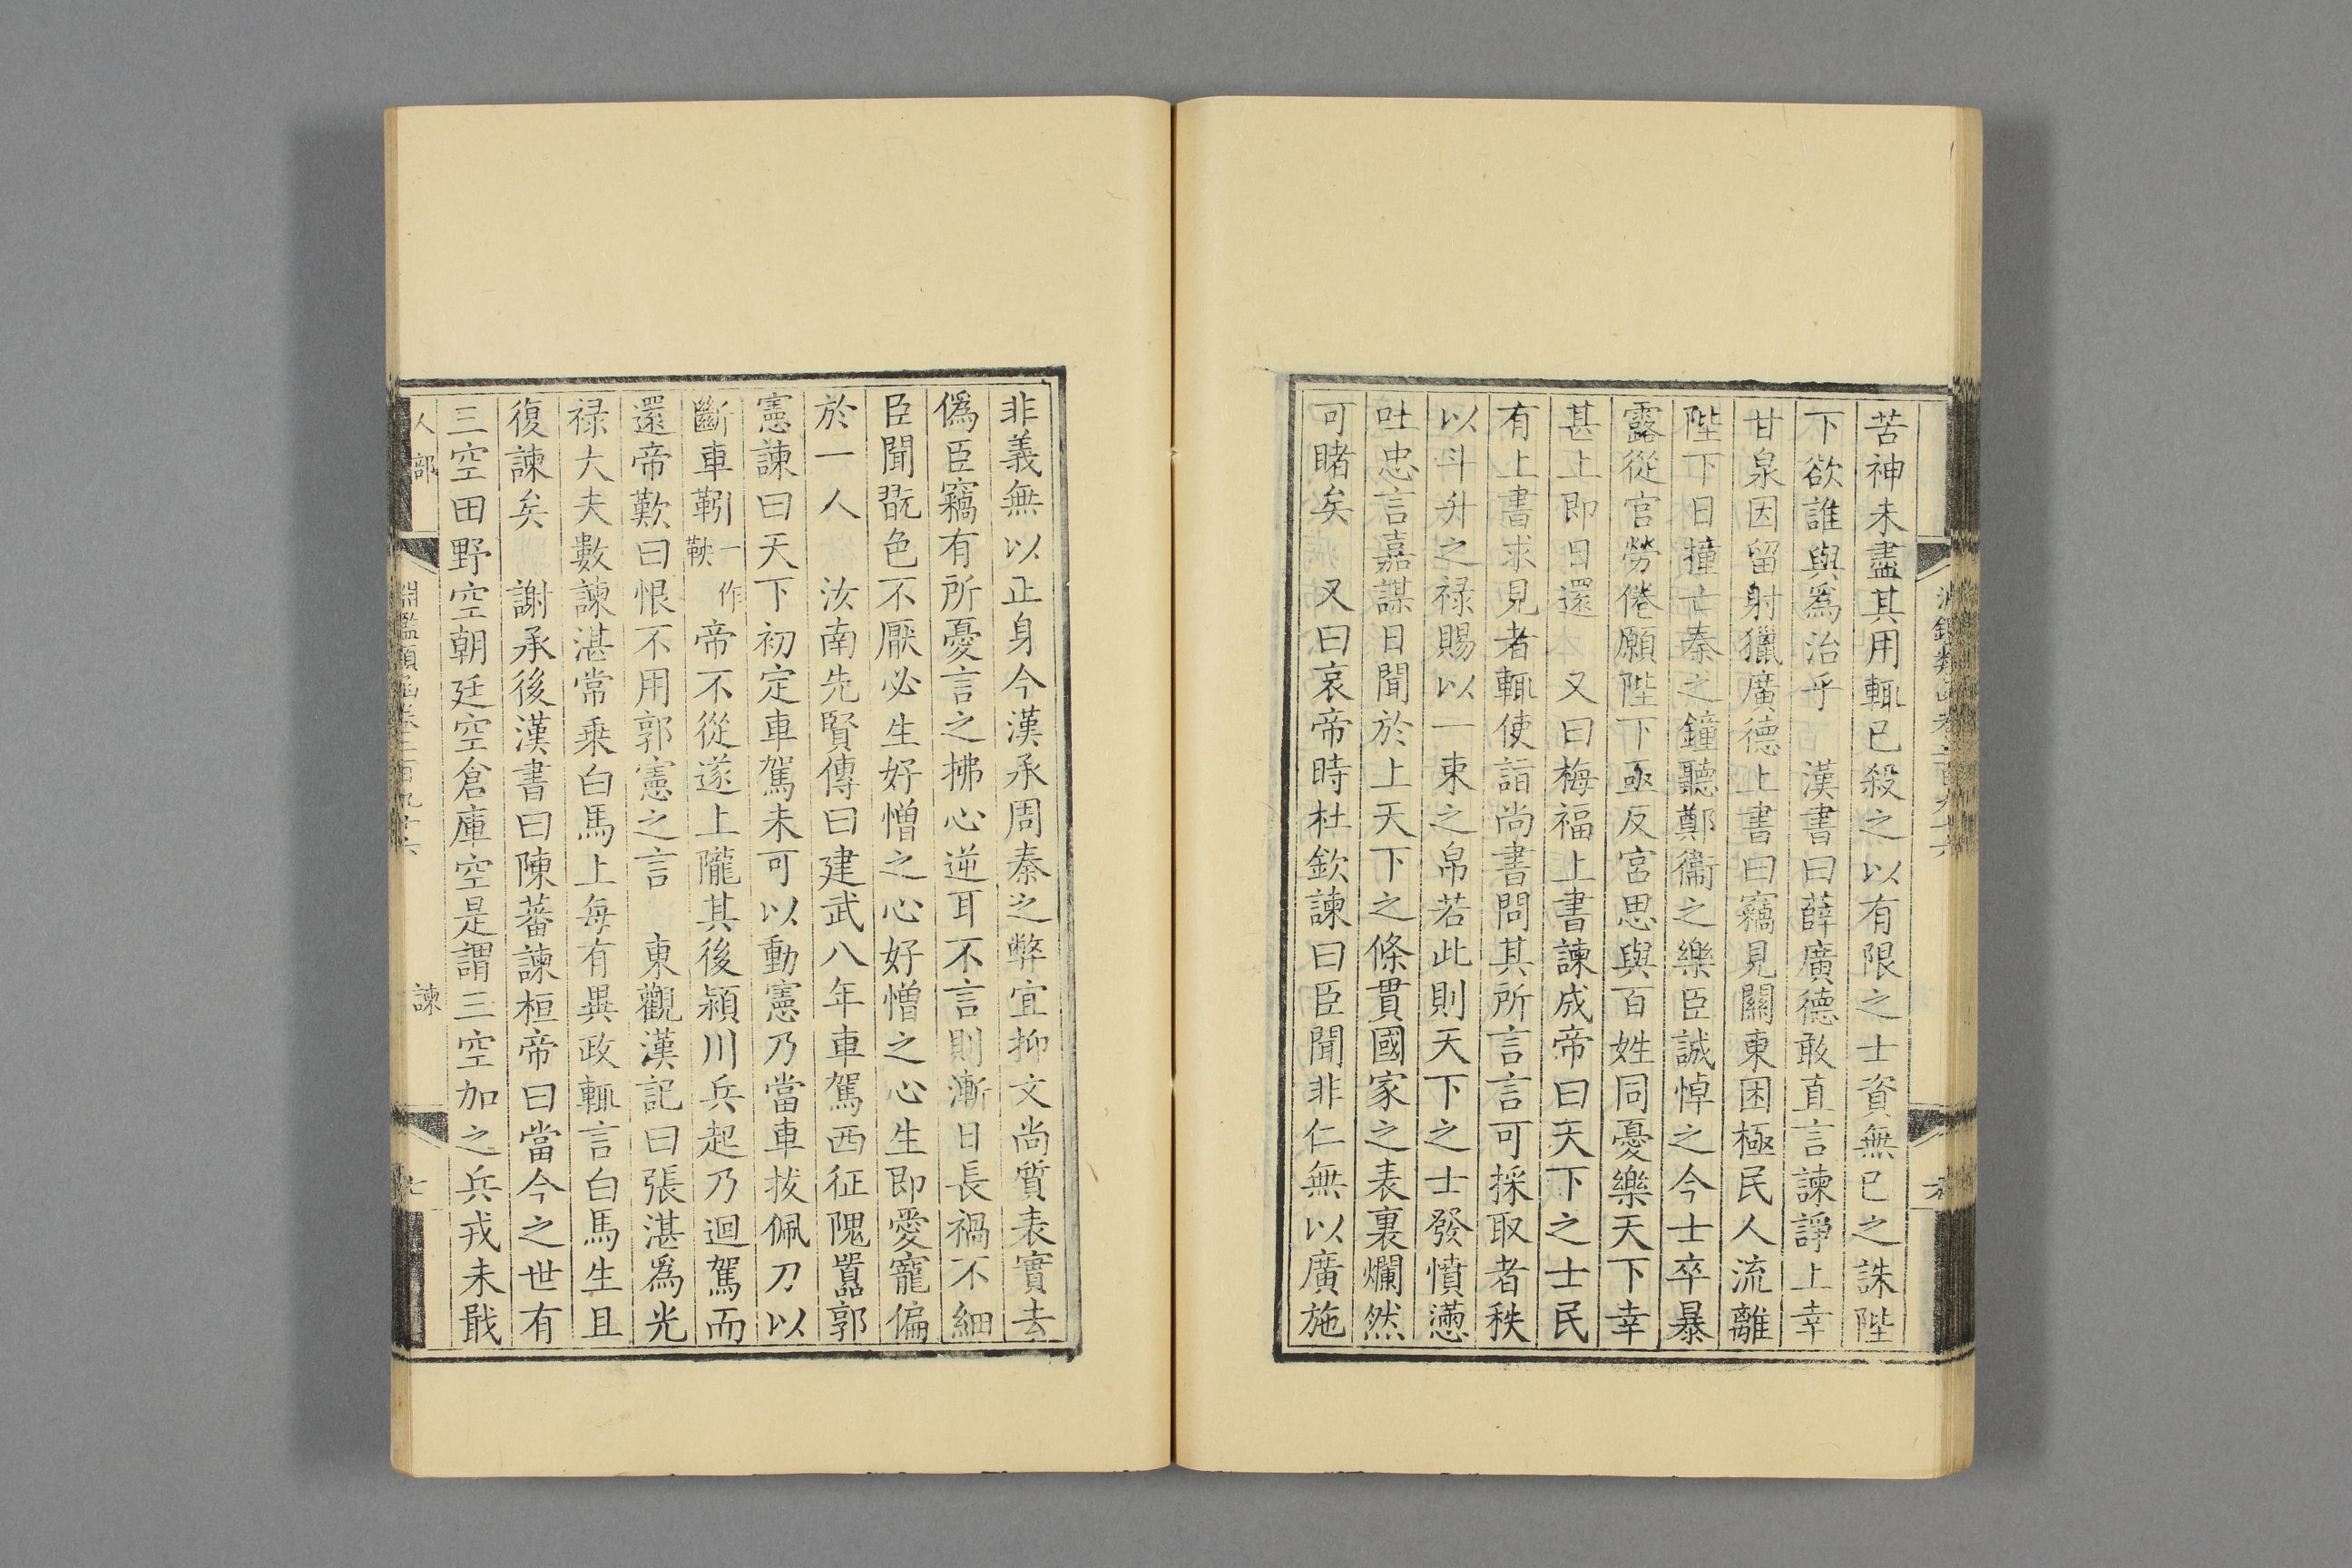 苦神未盡其用輒已殺之以有限之士資無已之誅陛
下欲誰與爲治乎　漢書曰薛廣德敢直言諫諍上幸
甘泉因留射獵廣德上書曰竊見關東困極民人流離
陛下日撞亡秦之鐘聽鄭衞之樂臣誠悼之今士卒暴
露從官勞倦願陛下亟反宮思與百姓同憂樂天下幸
甚上即日還　又曰梅福上書諫成帝曰天下之士民
有上書求見者輒使詣尚書問其所言言可採取者秩
以斗升之禄賜以一束之帛若此則天下之士發憤懣
吐忠言嘉謀日聞於上天下之條貫國家之表裏爛然
可睹矣　又曰哀帝時杜欽諫曰臣聞非仁無以廣施
非義無以正身今漢承周秦之弊宜抑文尚質表實去
僞臣竊有所憂言之拂心逆耳不言則漸日長禍不細
臣聞翫色不厭必生好憎之心好憎之心生即愛寵偏
於一人　汝南先賢傳曰建武八年車駕西征隗囂郭
憲諫曰天下初定車駕未可以動憲乃當車拔佩刀以
斷車靷一作鞅帝不從遂上隴其後潁川兵起乃迴駕而
還帝歎曰恨不用郭憲之言　東觀漢記曰張湛爲光
禄大夫數諫湛常乗白馬上每有異政輒言白馬生且
復諫矣　謝承後漢書曰陳蕃諫桓帝曰當今之世有
三空田野空朝廷空倉庫空是謂三空加之兵戎未戢
人部
淵鑑類函卷二百九十六
諫
七